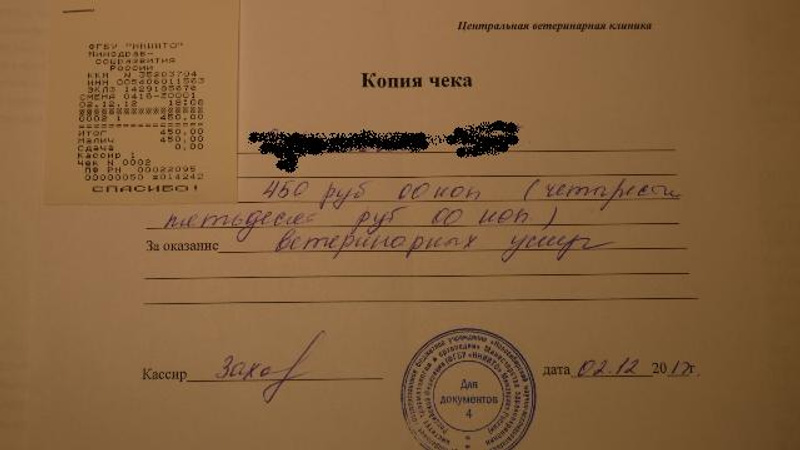 ФГБУ "ННИИТО"
Минздрав-
соцразвития
России
ККМ N 35203794
ИНН 005406011563
ЭКЛЗ 1429185678
СМЕНА 0416-Z0001
02.12.12 18:06
0002 1 450.00
ИТОГ 450.00
Налич 450.00
Сдача 0.00
Кассир 1
Чек N 0002
ПФ РН 00022095
00000050 #014242
СПАСИБО!
Центральная ветеринарная клиника
Копия чека
450 руб 00 коп (четыреста
пятьдесят руб 00 коп)
За оказание ветеринарных услуг
Кассир
дата 02.12 2012г.
Для
документов
4